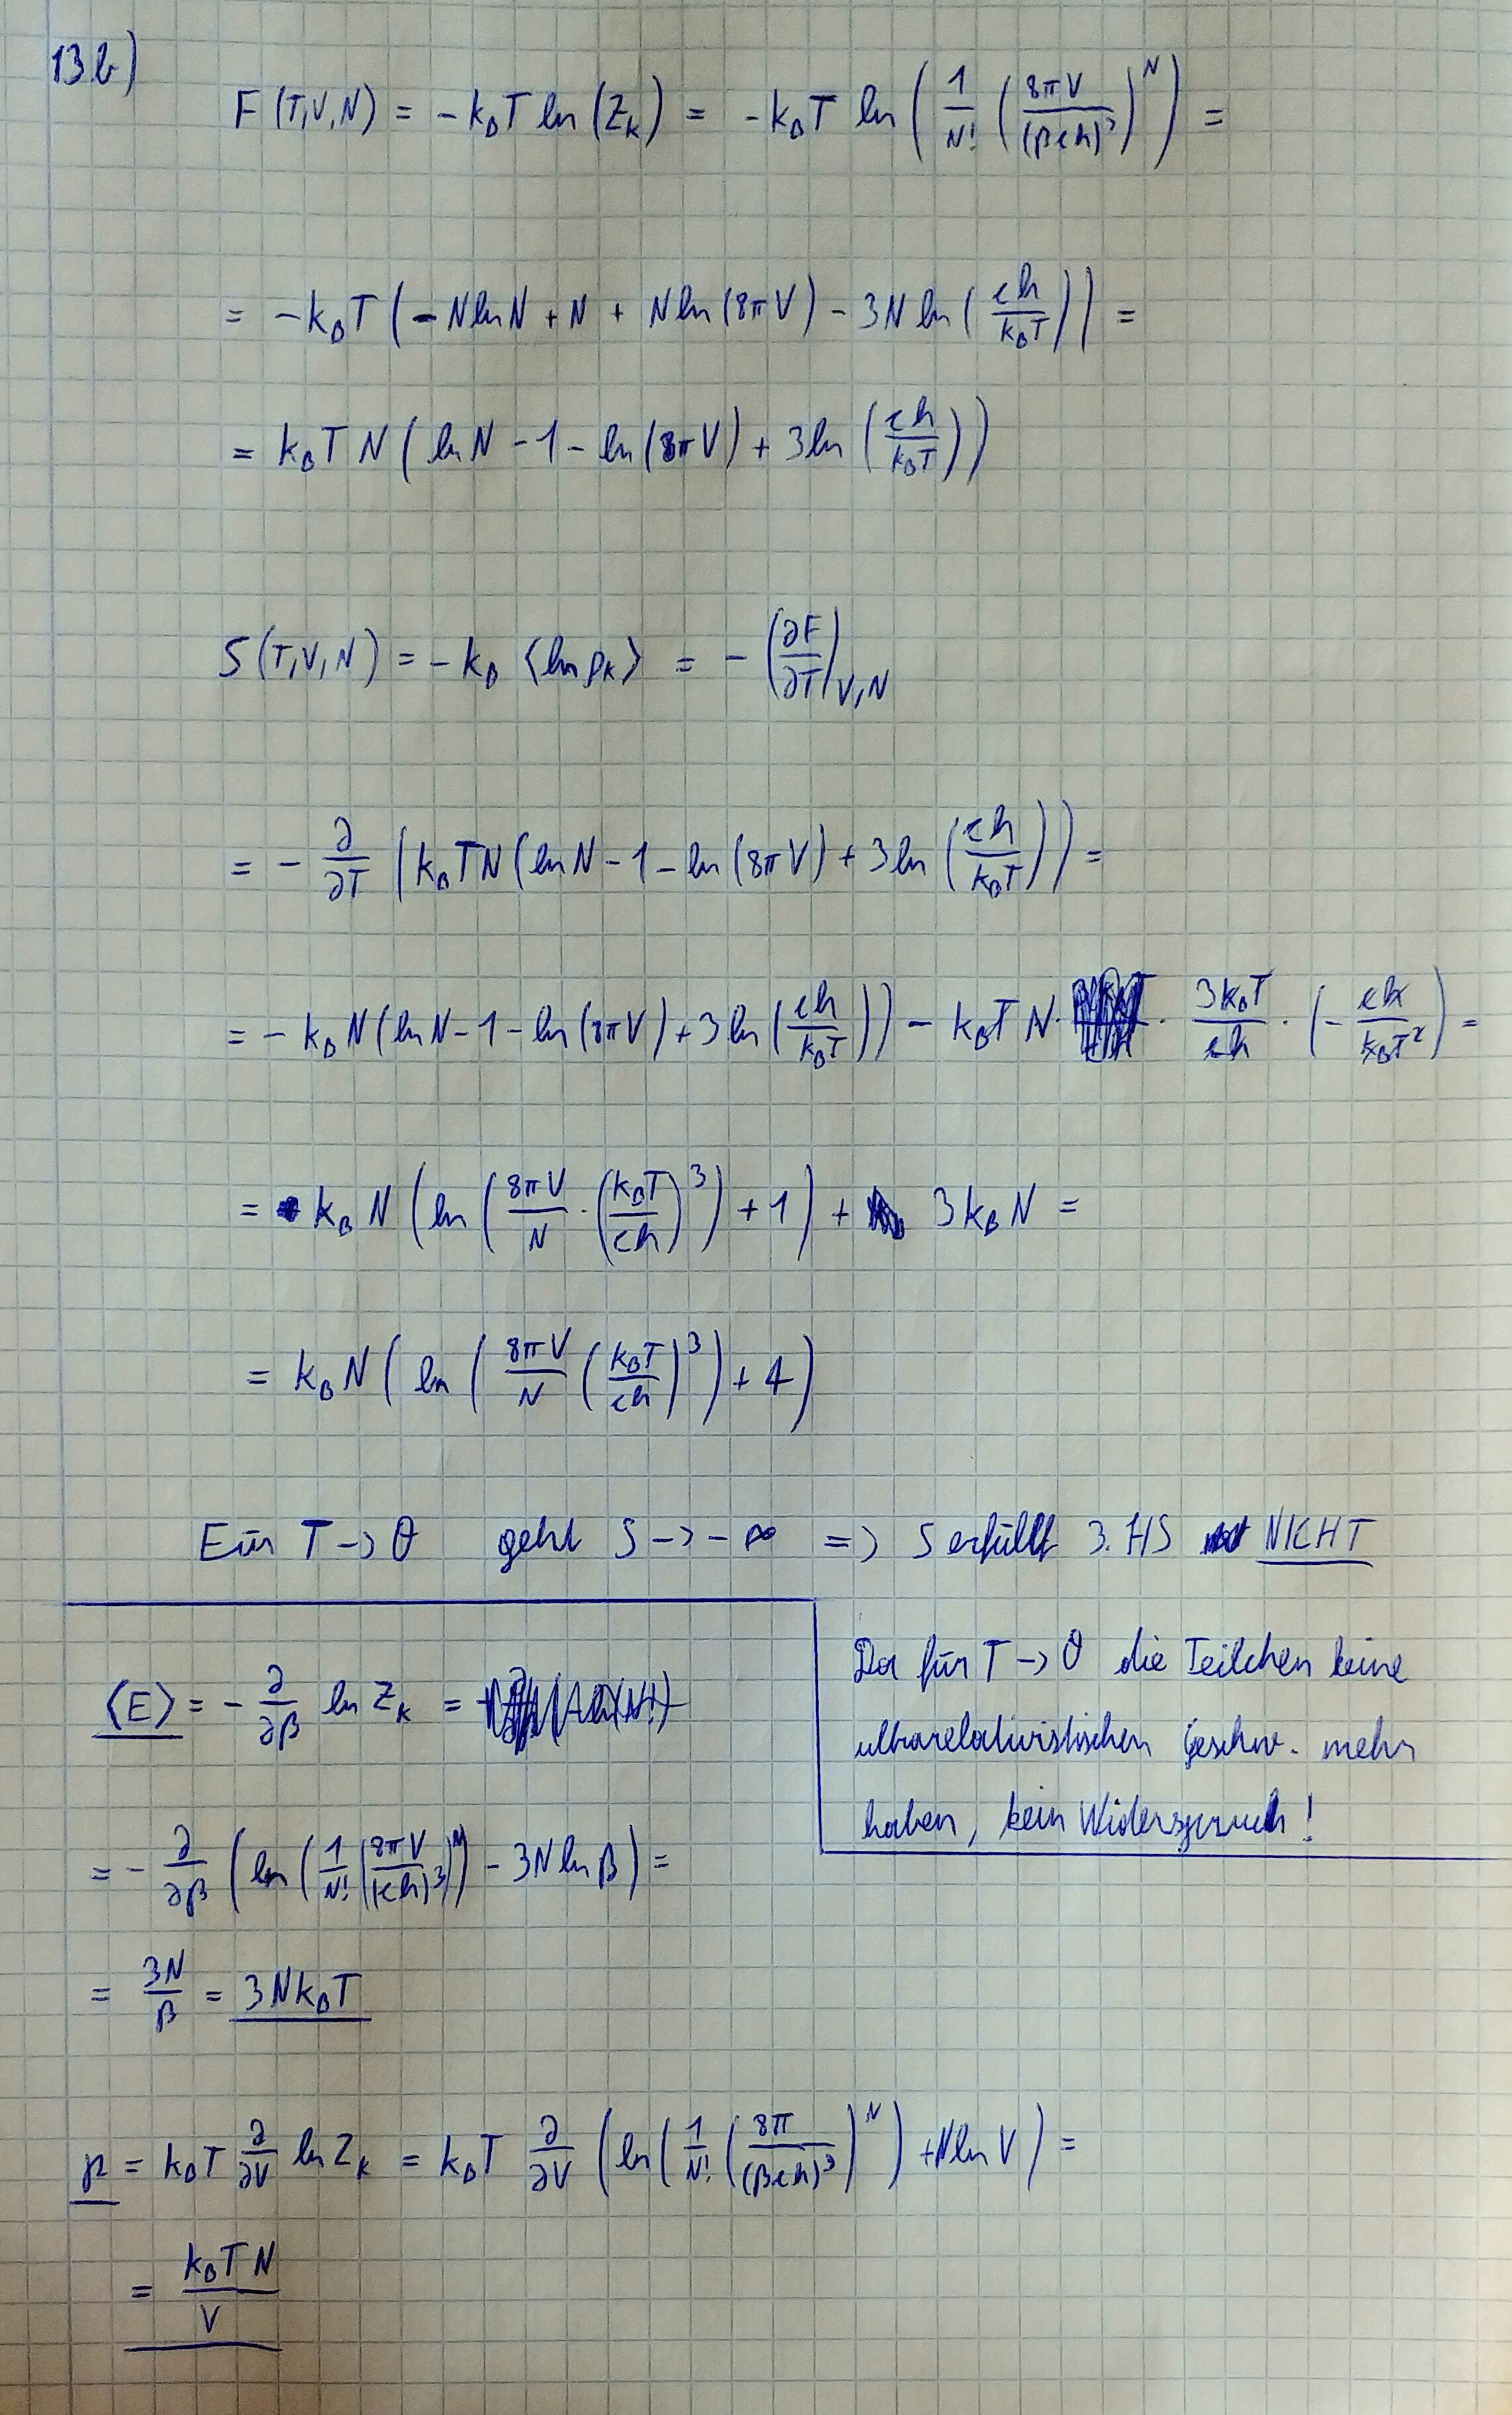 13b)
F(T,V,N) = -k_B T ln(Z_K) = -k_B T ln(1/N! (8πV/(βch)^3)^N) =
= -k_B T(-N ln N + N + N ln(8πV) - 3N ln(ch/k_B T)) =
= k_B T N(ln N - 1 - ln(8πV) + 3 ln(ch/k_B T))
S(T,V,N) = -k_B ⟨ln ρ_K⟩ = -(∂F/∂T)_V,N
= - ∂/∂T (k_B T N(ln N - 1 - ln(8πV) + 3 ln(ch/k_B T))) =
= -k_B N(ln N - 1 - ln(8πV) + 3 ln(ch/k_B T)) - k_B T N · · 3k_B T/ch · (- ch/k_B T^2) =
= k_B N(ln(8πV/N · (k_B T/ch)^3) + 1) + 3k_B N =
= k_B N(ln(8πV/N (k_B T/ch)^3) + 4)
Für T -> 0 geht S -> -∞ => S erfüllt 3. HS NICHT
Da für T -> 0 die Teilchen keine
ultrarelativistischen Geschw. mehr
haben, kein Widerspruch!
⟨E⟩ = - ∂/∂β ln Z_K =
= - ∂/∂β (ln(1/N! (8πV/(ch)^3)^N) - 3N ln β) =
= 3N/β = 3N k_B T
p = k_B T ∂/∂V ln Z_K = k_B T ∂/∂V (ln(1/N! (8π/(βch)^3)^N) + N ln V) =
= k_B T N/V